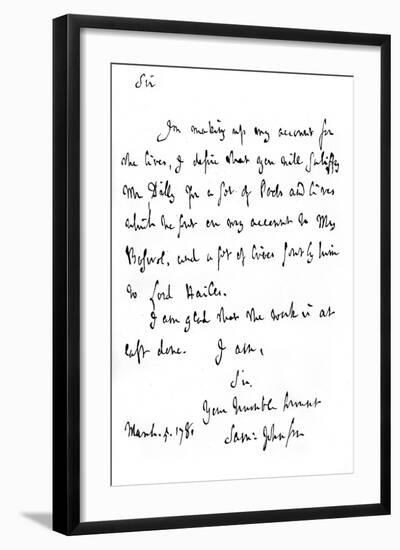 Sir
In making up my account for
the Lives, I desire that you will satisfy
Mr Dilly for a set of Poets and Lives
which he sent on my account to Mrs
Boswel, and a set of Lives sent by him
to Lord Hailes.
I am glad that the work is at
last done. I am,
Sir,
Your humble servant
March 5. 1781 Sam: Johnson